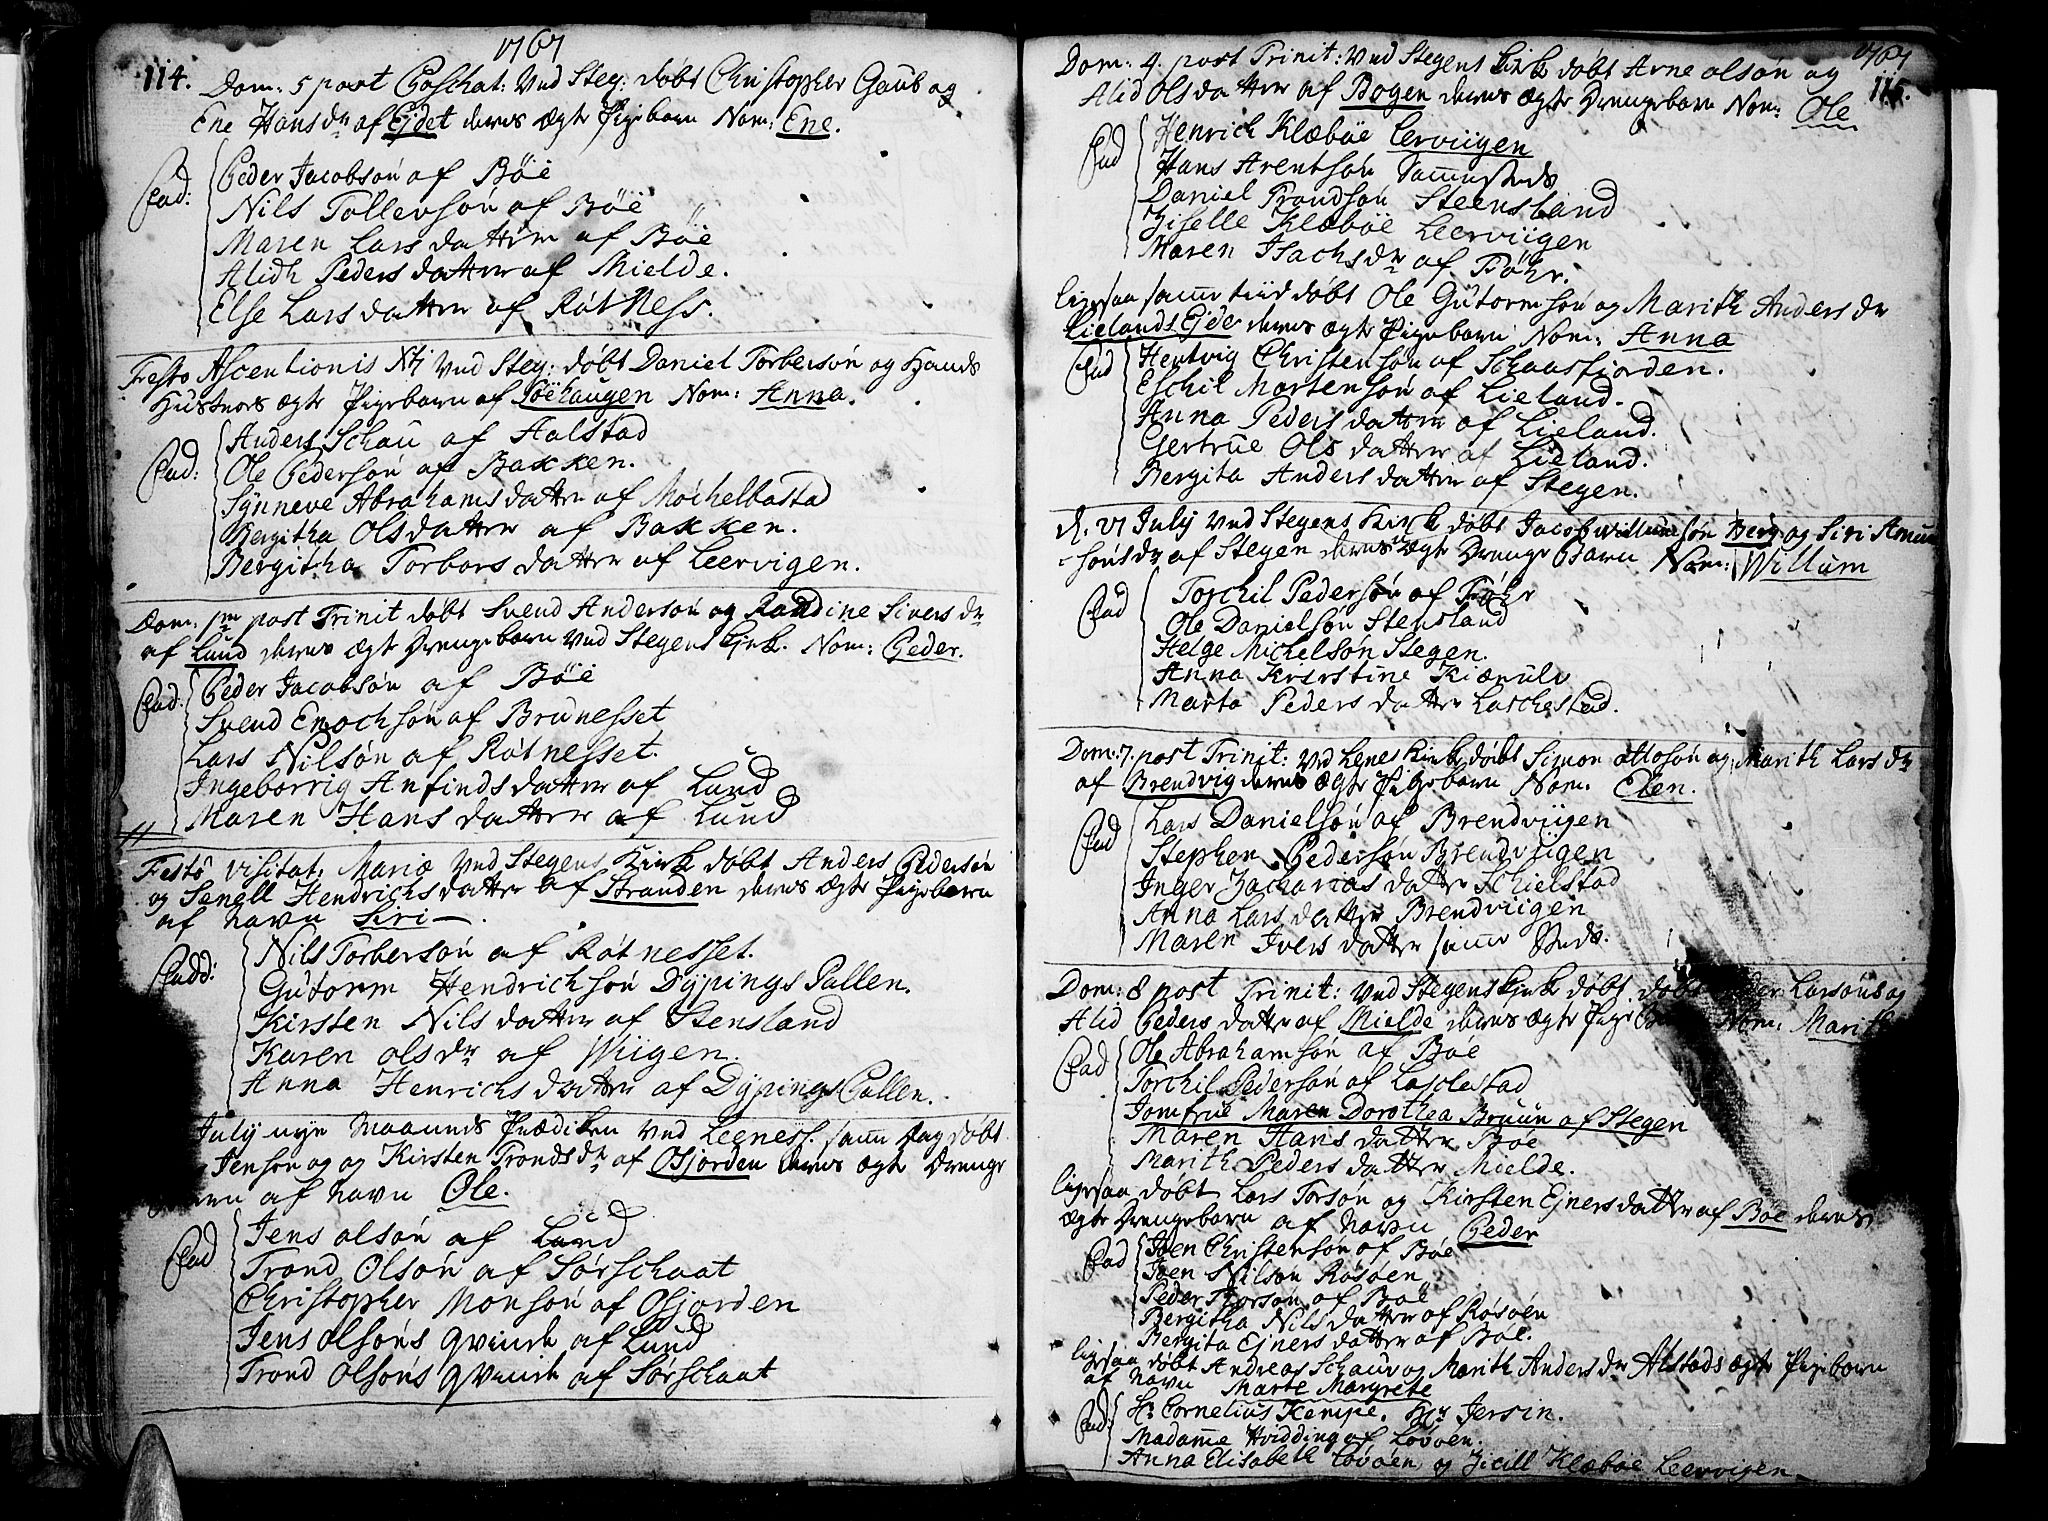 1767
114.
Dom: 5 post Paschat: Ved Steg: døbt Christopher Gaub og
Ene Hans dr af Ejdet deres Ægte Pigebarn Nom: Ene.
Fad:
Peder Jacobsøn af Bøe
Nils Tollersøn af Bøe
Maren Lars datter af Bøe
Alidh Peders datter af Mielde.
Else Lars datter af Røtness.
Festo Ascentionis Xti ved Steg: døbt Daniel Torbersøn og Hands
Hustroes ægte Pigebarn af Løehaugen Nom: Anna.
Fad:
Anders Schau af Aalstad
Ole Pedersøn af Bakken.
Synneve Abrahams datter af Mochelbostad
Bergitha Olsdatter af Bakken.
Bergitha Torbors datter af Leervigen.
Dom: 1me post Trinit døbt Svend Andersøn og Randine Sivers dr
af Lund deres ægte Drengebarn ved Stegens Kirk. Nom: Peder.
Fad:
Peder Jacobsøn af Bøe
Svend Enochsøn af Brunesset
Lars Nilsøn af Røtnesset.
Ingeborrig Anfinds datter af Lund
Maren Hans datter af Lund
Festo visitat: Mariæ ved Stegens Kirk døbt Anders Pedersøn
og Senell Hendrichs datter af Stranden deres ægte Pigebarn
af navn Siri
Fadd:
Nils Torbersøn af Røtnesset.
Gutorm Hendrichsøn Dypings Pallen.
Kirsten Nils datter af Stensland
Karen ols dr af Wiigen.
Anna Henrichs datter af Dypings Pallen.
July nye Maaneds Prædiken ved Leeness. samme Dag døbt
Jensøn og og Kirsten Tronds dr af Osjorden deres ægte Drenge
af navn Ole.
Fad
Jens olsøn af Lund
Trond Olsøn af Sørschaat
Christopher Monsøn af Osjorden
Jens olsøns qvinde af Lund
Trond Olsøns qvinde af Sørschaat
1767
115.
Dom: 4. post Trinit: Ved Stegens Kirk døbt Arne olsøn og
Alid Olsdatter af Bogen deres ægte Drengebarn Nom: Ole.
Fad
Henrich Klæbøe Lerviigen
Hans Arentsøn Sammesteds
Daniel Trondsøn Steensland
Ziselle Klæbøe Leerviigen
Maren Isachs dr af Føhr.
ligesaa samme tiid døbt Ole Gutormsøn og Marith Anders dr
Lielands Ejde deres ægte Pigebarn Nom: Anna
Fad
Hentvig Christensøn af Schaasfiorden.
Eschil Mortensøn af Lieland.
Anna Peders datter af Lieland.
Gertrue Ols datter af Lieland.
Bergita Anders datter af Stegen.
d: 21 July ved Stegens Kirk døbt Jacob Willumsøn Berg og Siri Amun
søns dr af Stegen deres ægte Drenge Barn Nom: Willum
Fad
Torchil Pedersøn af Føhr
Ole Danielsøn Stensland
Helge Michelsøn Stegen.
Anna Kierstine Kiærulv
Marta Peders datter Laschestad.
Dom: 7. post Trinit: Ved Lenes Kirk døbt Simon ottosøn og Marith Lars dr
af Brendvig deres ægte Pigebarn Nom. Elen.
Fad
Lars Danielsøn af Brendviigen
Stephen Pedersøn Brendviigen
Inger Zacharias datter Schielstad
Anna Lars datter Brendviigen
Maren Ivers datter samme Steds.
Dom: 8 post Trinit: Ved Stegens Kirk døbt døbt Peder Larsøns og
Alid Peders datter af Mielde deres ægte Pige Barn Nom: Marith
Fad
Ole Abrahamsøn af Bøe
Torchil Pedersøn af Laschestad
Jomfrue Maren Dorothea Bruun af Stegen
Maren Hans datter Bøe
Marith Peders datter Mielde.
ligesaa døbt Lars Torsøn og Kirsten Ejners datter af Bøe deres
ægte Drengebarn af navn Peder
Fad
Joen Christensøn af Bøe
Joen Nilsøn Røsøen
Peder Torsøn af Bøe
Bergitha Nils datter af Røsøen
Bergita Ejners datter af Bøe.
ligesaa døbt Andreas Schau og Marith Anders dr Alstads ægte Pigebarn
af navn Marte Margrete
Fad:
Hr. Cornelius Kempe. Hr Jersin.
Madame Hvidding af Løvøen.
Anna Elisabeth Løvøen og Zicill Klæbøe Leervigen